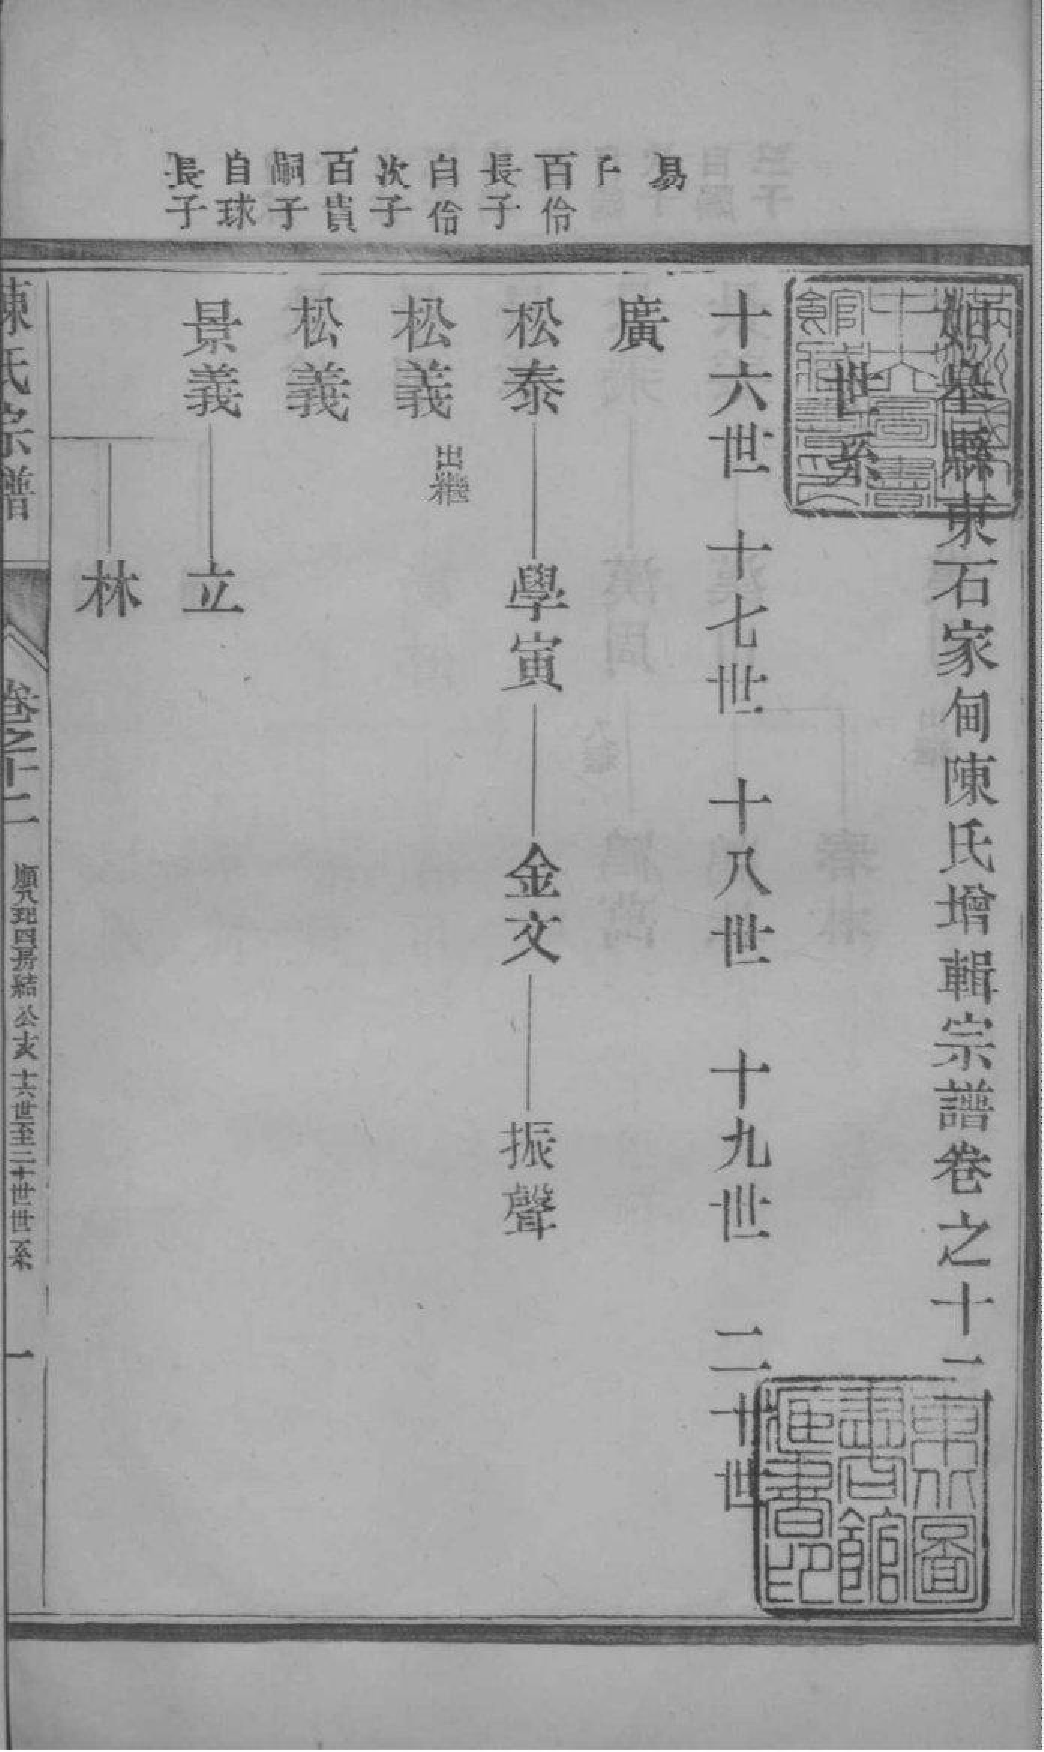 姑墓縣東石家甸陳氏增輯宗譜卷之十二
世系
十六世 十七世 十八世 十九世 二十世
易
廣
百伶
長子
松泰 學寅 金文 振聲
百伶
次子
松義 出繼
百貴
嗣子
松義
自球
長子
景義 立
林
陳氏宗譜 卷之十二 公亥 十六世至二十世世系 一
東北圖
書館
藏書印